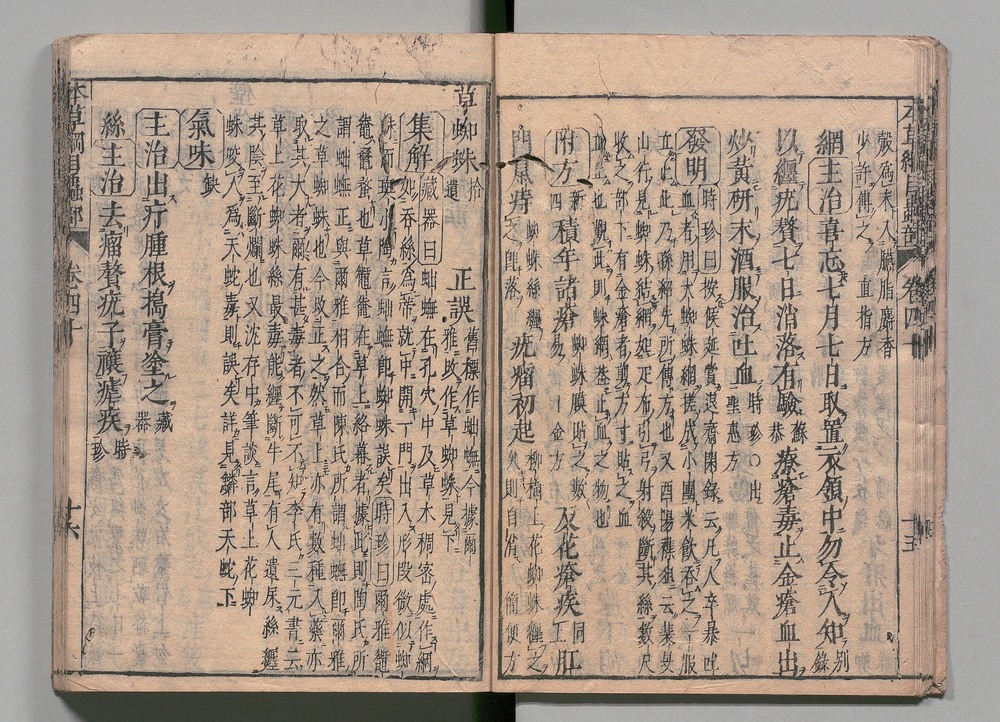 殼爲末入臙脂麝香
少許傅之 直指方
網主治喜忘七月七日取置衣領中勿令人知別錄
以纏疣贅七日消落有驗蘇恭療瘡毒止金瘡血出
炒黃研末酒服治吐血時珍○出聖惠方
發明時珍曰按侯延賞退齋閑錄云凡人卒暴吐
血者用大蜘蛛網搓成小團米飲吞之一服
立止此乃孫紹先所傳方也又酉陽雜俎云裴旻
山行見蜘蛛結網如疋布引弓射殺斷其絲數尺
收之部下有金瘡者剪方寸貼之血
止也觀此則蛛網蓋止血之物也
附方新四積年諸瘡蜘蛛膜貼之數易千金方反花瘡疾同上肛
門鼠痔蜘蛛絲纏之即落疣瘤初起柳樹上花蜘蛛纏之久則自消簡便方
草蜘蛛拾遺正誤舊標作蚰蟱今據爾雅改作草蜘蛛見下
集解藏器曰蚰蟱在孔穴中及草木稠密處作網
如蚕吞絲爲幕就中開一門出入形段微似蜘
蛛而斑
之草蜘蛛也今改正之然草上亦有數種入藥亦
取其大者爾有甚毒者不可不知李氏三元書云
草上花蜘蛛絲最毒能纏斷牛尾有人遺尿絲纏
其陰至斷爛也又沈存中筆談言草上花蜘
蛛咬人爲天蛇毒則誤矣詳見鱗部天蛇下
氣味缺
主治出疔腫根搗膏塗之藏器
絲主治去瘤贅疣子禳瘧疾時珍
本草綱目蟲部 卷四十 十六